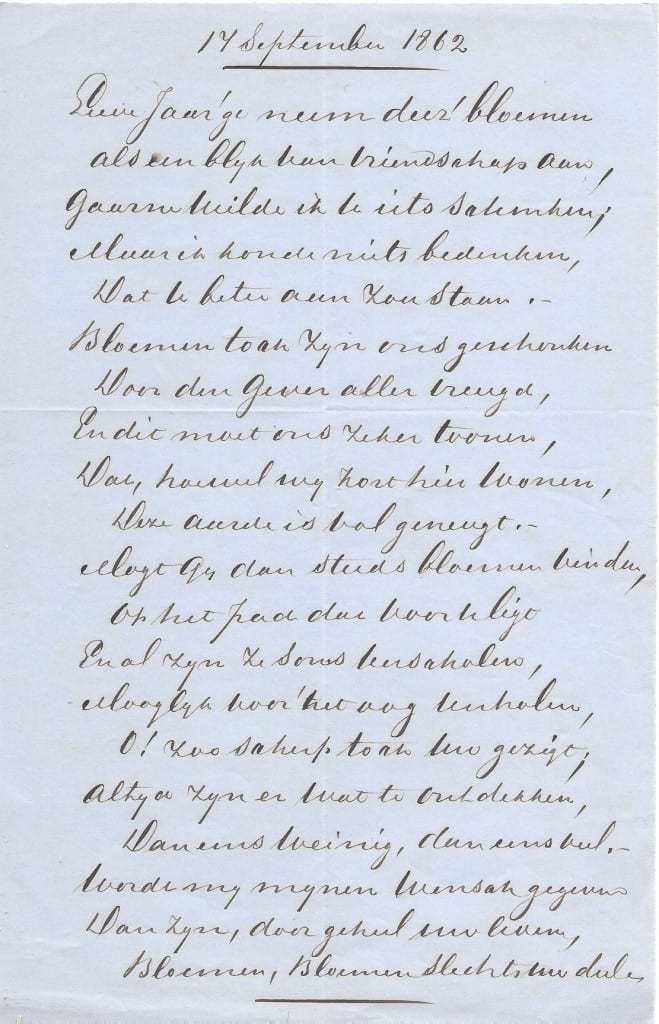 17 September 1862
Lieve Jaar'ge neem deez' bloemen
als een blyk van vriendschap aan,
Gaarne wilde ik U iets schenken;
Maar ik konde niets bedenken,
Dat U beter aan zou staan.-
Bloemen toch zyn ons geschonken
Door den Gever aller vreugd,
En dit moet ons zeker toonen,
Dat, hoewel wy kort hier wonen,
Deze aarde is vol geneugt.-
Mogt Gy dan steeds bloemen vinden,
Op het pad dat voor U ligt
En al zyn ze soms verscholen,
Mooglyk voor 't oog verholen,
O! zoo scherp toch Uw gezigt;
Altyd zyn er wat te ontdekken,
Dan eens weinig, dan eens veel.-
Worde my mynen wensch gegeven
Dan zyn, door geheel uw leven,
Bloemen, Bloemen slechts uw deel.